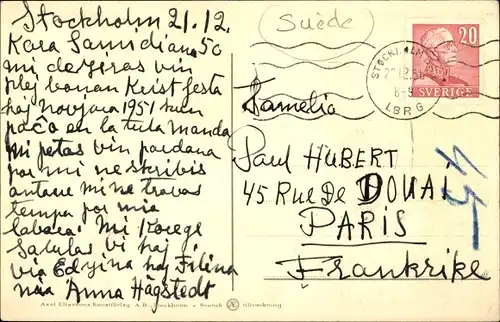 Stockholm 21.12.
Kara Samidiano 50
mi deziras vin
plej bonan Kristfesta
kaj novjara 1951 kun
paĉo en la tuta mondo
Mi petas vin pardona
por mi ne skribis
antaue mi ne trovas
tempo por mia
labora. Mi Korege
Salutas vi kaj
via Edzina kaj Filina
Anna Hägstedt
Axel Eliassons Konstförlag A.B., Stockholm - Svensk tillverkning
Suède
20
SVERIGE
STOCKHOLM
LBRG
Familia
Paul HUBERT
45 RUE DE DOUAI
PARIS
Frankrike